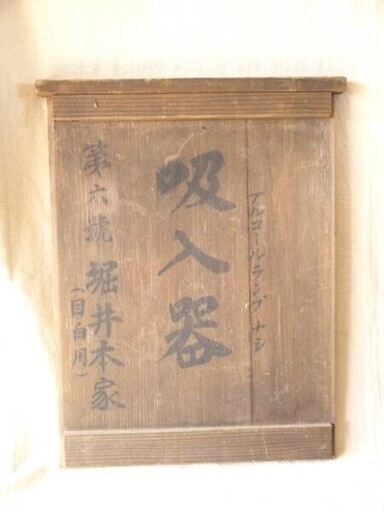 アルコールランプナシ
吸入器
第六號
堀井本家
(目白月)